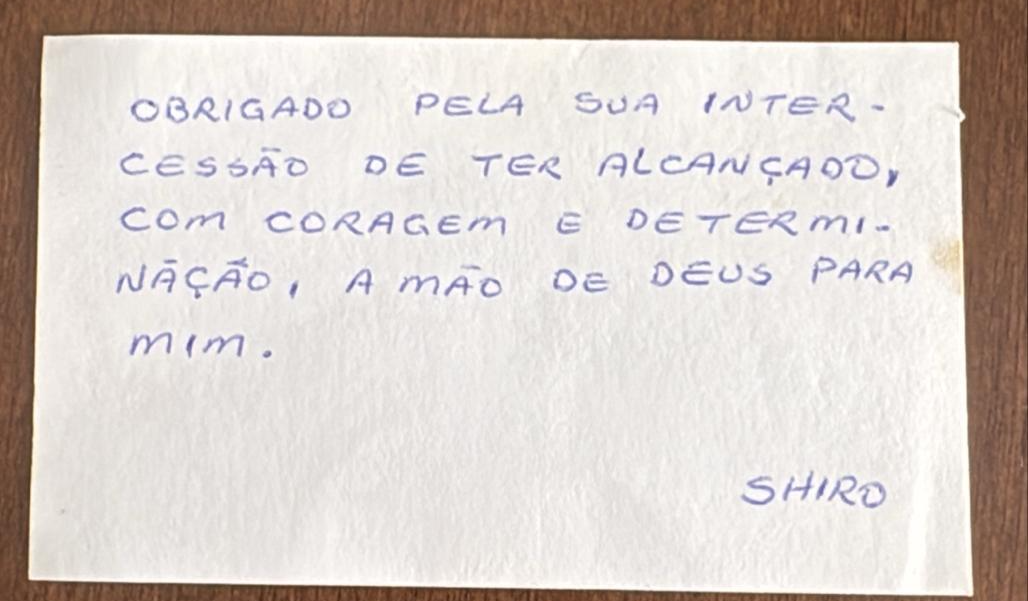 OBRIGADO PELA SUA INTER-
CESSÃO DE TER ALCANÇADO,
COM CORAGEM E DETERMI-
NÃÇÃO, A MÃO DE DEUS PARA
MIM.
SHIRO